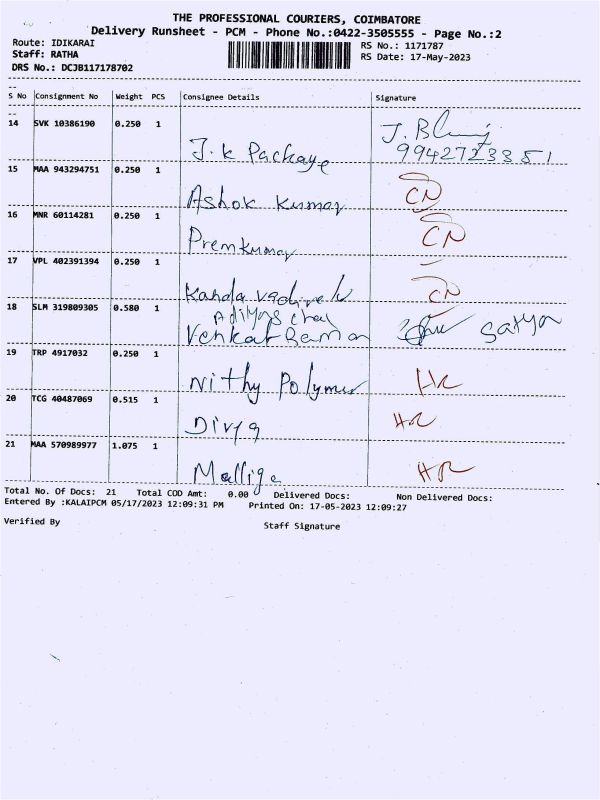 THE PROFESSIONAL COURIERS, COIMBATORE
Delivery Runsheet - PCM - Phone No.:0422-3505555 - Page No.:2
Route: IDIKARAI RS No.: 1171787
Staff: RATHA RS Date: 17-May-2023
DRS No.: DCJB117178702
S No Consignment No Weight PCS Consignee Details Signature
14 SVK 10386190 0.250 1
J.k Packaye 9942723351
15 MAA 943294751 0.250 1
Ashok Kumar CN
16 MNR 60114281 0.250 1
Premkumar CN
17 VPL 402391394 0.250 1
Kanda vadivelu CN
18 SLM 319809305 0.580 1
Venkat Raman Satya
19 TRP 4917032 0.250 1
Nithy Polymer HR
20 TCG 40487069 0.515 1
Divya HR
21 MAA 570989977 1.075 1
Mallige HR
Total No. Of Docs: 21 Total COD Amt: 0.00 Delivered Docs: Non Delivered Docs:
Entered By :KALAIPCM 05/17/2023 12:09:31 PM Printed On: 17-05-2023 12:09:27
Verified By Staff Signature